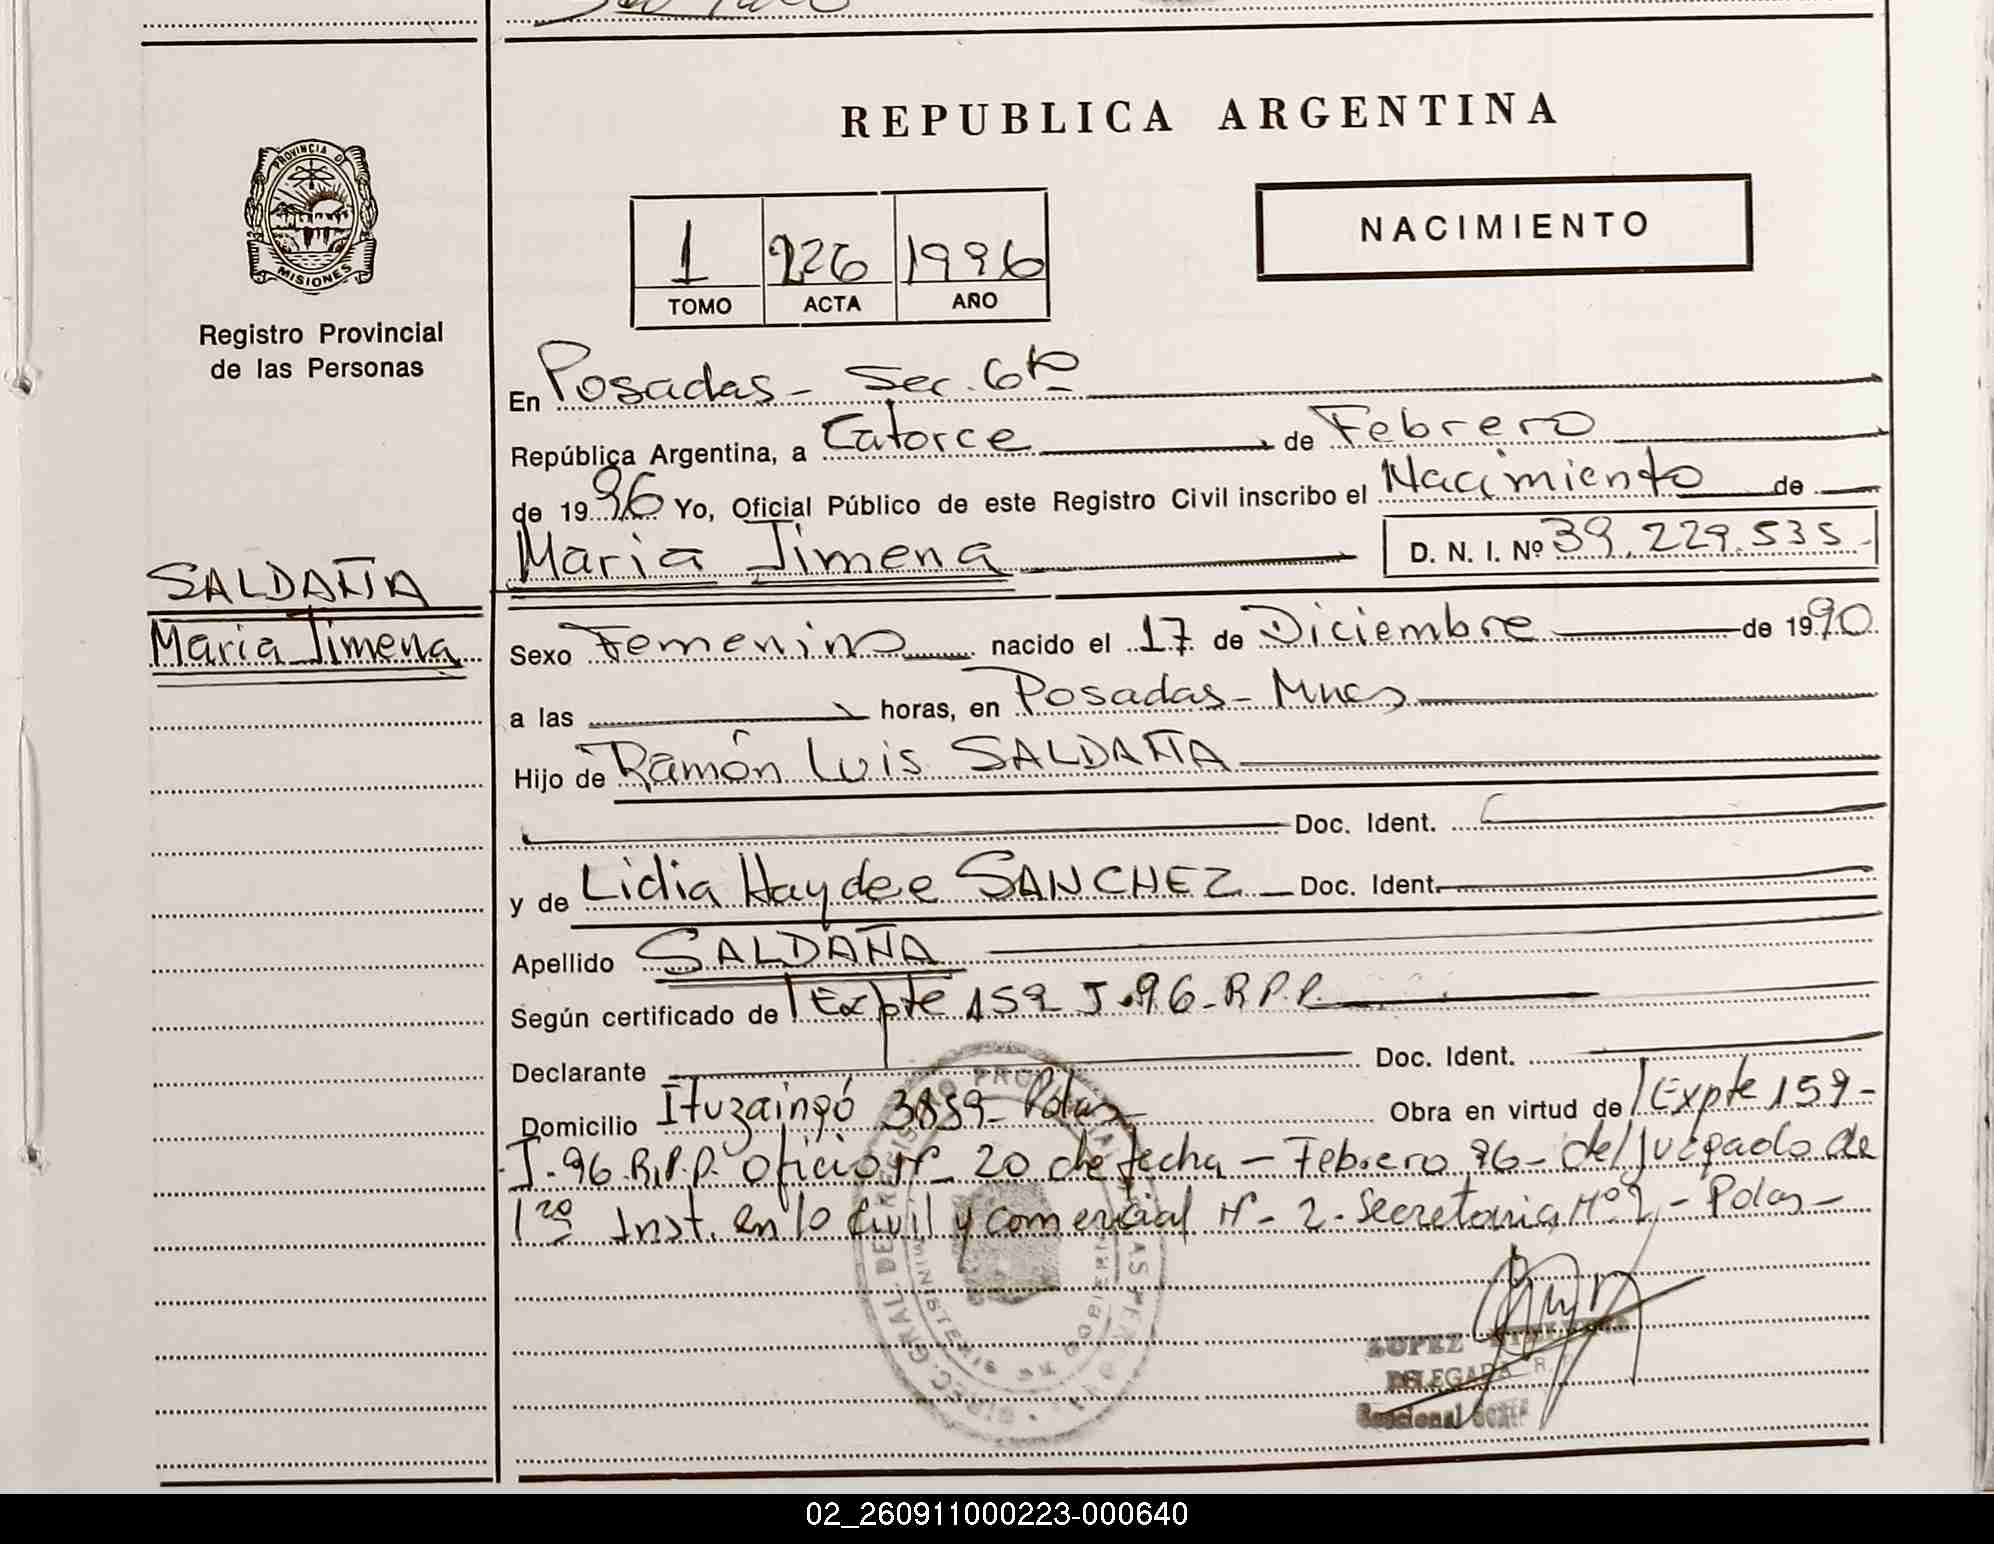 REPUBLICA ARGENTINA
PROVINCIA D
MISIONES
Registro Provincial
de las Personas
NACIMIENTO
1 226 1996
TOMO ACTA AÑO
En Posadas - Sec. 6ta
República Argentina, a Catorce de Febrero
de 1996 Yo, Oficial Público de este Registro Civil inscribo el Nacimiento de
Maria Jimena D. N. I. Nº 39.229.535
SALDAÑA
Maria Jimena
Sexo Femenino nacido el 17 de Diciembre de 1990
a las horas, en Posadas - Mnes
Hijo de Ramón Luis SALDAÑA
Doc. Ident.
y de Lidia Haydee SANCHEZ Doc. Ident.
Apellido SALDAÑA
Según certificado de Expte 159 J.96-R.P.P.
Declarante Doc. Ident.
Domicilio Ituzaingó 3859 - Pdas Obra en virtud de Expte 159-
J-96 R.P.P. oficio Nº 20 de fecha - Febrero 96 - del Juzgado de
1ra Inst. en lo Civil y comercial Nº 2 - Secretaria Nº 2 - Pdas -
LOPEZ
DELEGADA R.
Seccional
02_260911000223-000640